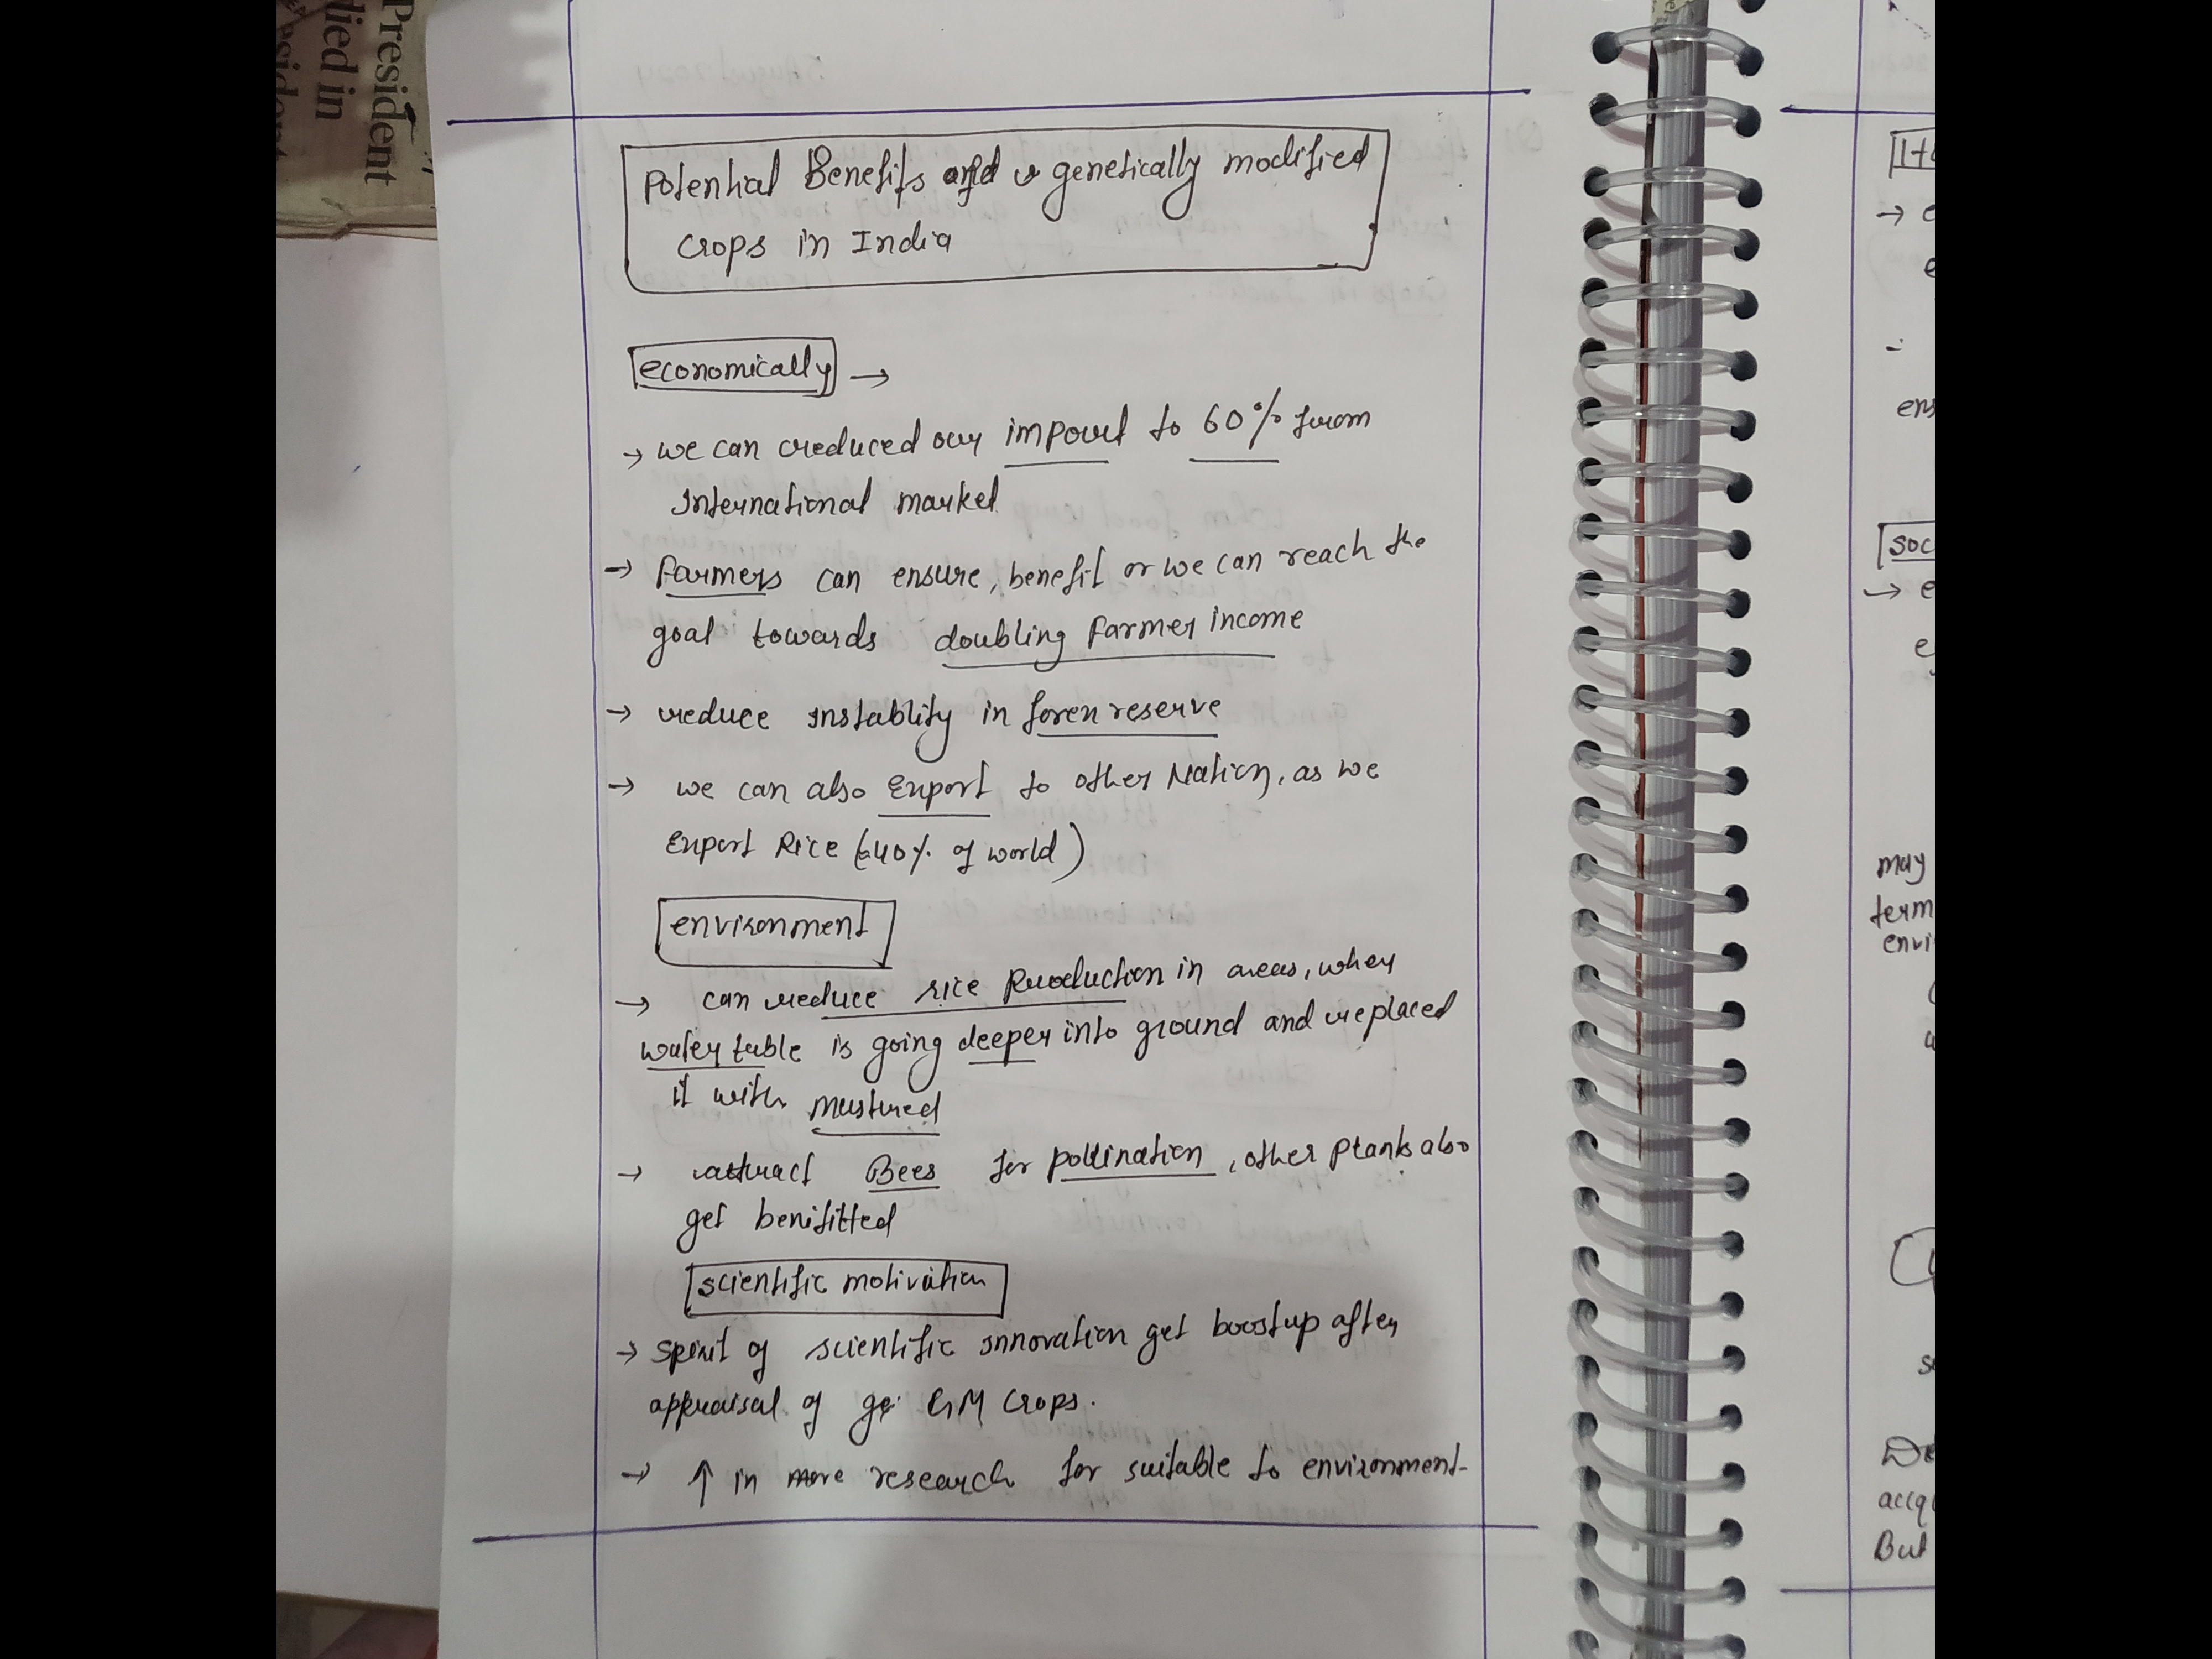 President
died in
Potential Benefits and genetically modified
crops in India
economically →
→ we can reduced our import to 60% from
International market
→ farmers can ensure, benefit or we can reach the
goal towards doubling farmer income
→ reduce instablity in foren reserve
→ we can also Export to other Nation, as we
Export Rice (40% of world)
environment
→ can reduce rice Production in areas, wher
water table is going deeper into ground and replaced
it with mustured
→ attract Bees for pollination, other Plants also
get benifitted
scientific motivation
→ spirit of scientific innovation get boostup after
appraisal of ge GM Crops.
→ ↑ in more research for suitable to environment
→ e
ens
soc
→ e
may
term
envi
acqu
But